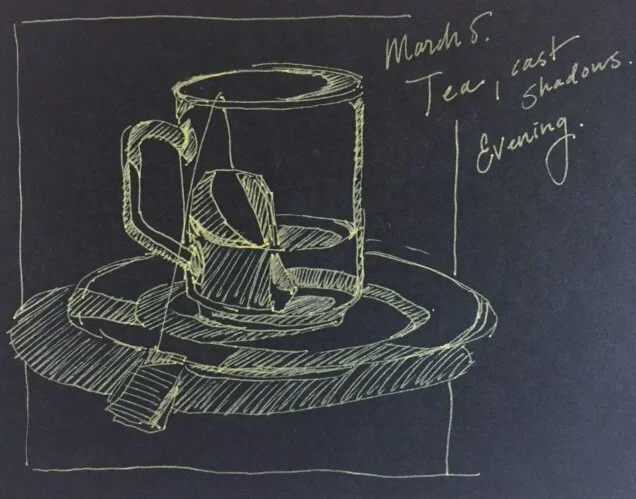 March 5.
Tea, cast
shadows.
Evening.